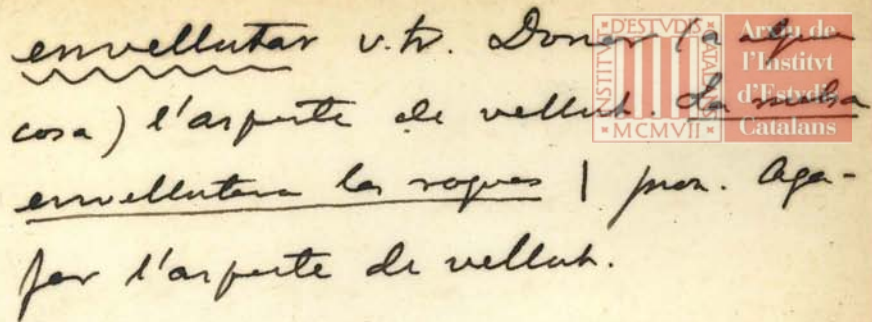 envellutar v. tr. Donar (a alguna
cosa) l'aspecte de vellut. La molsa
envellutava les roques | pron. Aga-
far l'aspecte de vellut.
INSTITVT D'ESTVDIS CATALANS
MCMVII
Arxiu de
l'Institvt
d'Estvdis
Catalans